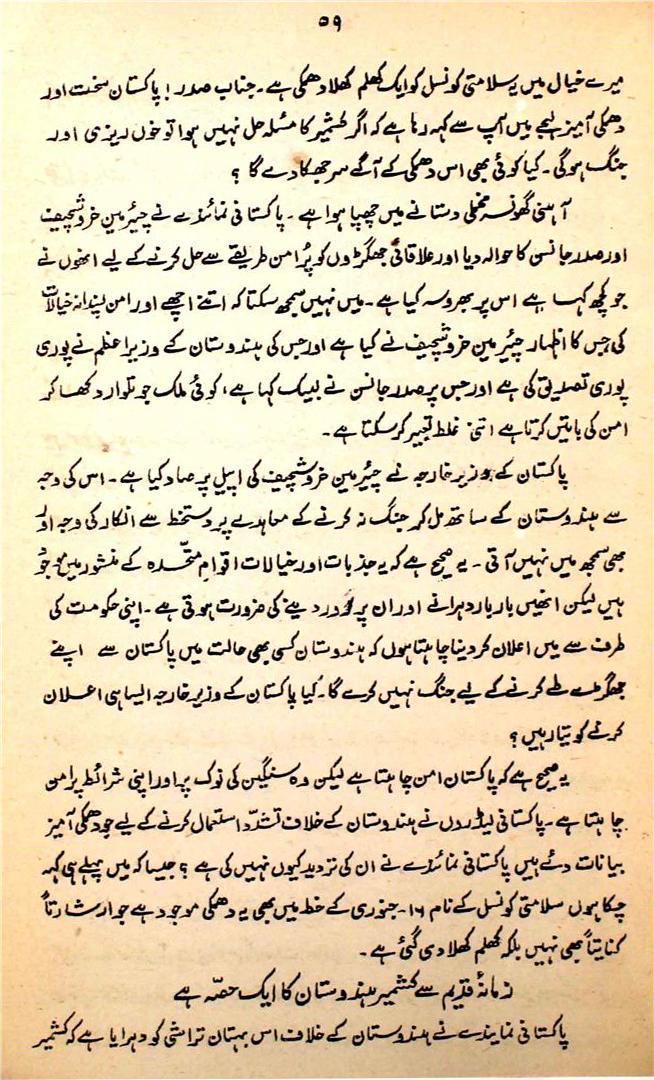 ۵۹
میرے خیال میں یہ سلامتی کونسل کو ایک کھلم کھلا دھمکی ہے۔ جناب صدر! پاکستان سخت اور
دھمکی آمیز لہجے میں آپ سے کہہ رہا ہے کہ اگر کشمیر کا مسئلہ حل نہیں ہوا تو خوں ریزی اور
جنگ ہوگی۔ کیا کوئی بھی اس دھمکی کے آگے سر جھکا دے گا؟
آہنی گھونسہ مخملی دستانے میں چھپا ہوا ہے۔ پاکستانی نمائندے نے چیئرمین خروشچیف
اور صدر جانسن کا حوالہ دیا اور علاقائی جھگڑوں کو پُرامن طریقے سے حل کرنے کے لیے انھوں نے
جو کچھ کہا ہے اس پر بھروسہ کیا ہے۔ میں نہیں سمجھ سکتا کہ اتنے اچھے اور امن پسندانہ خیالات
کی جس کا اظہار چیئرمین خروشچیف نے کیا ہے اور جس کی ہندوستان کے وزیر اعظم نے پوری
پوری تصدیق کی ہے اور جس پر صدر جانسن نے لبیک کہا ہے، کوئی ملک جو تلوار دکھا کر
امن کی باتیں کرتا ہے اتنی غلط تعبیر کر سکتا ہے۔
پاکستان کے وزیر خارجہ نے چیئرمین خروشچیف کی اپیل پر صاد کیا ہے۔ اس کی وجہ
سے ہندوستان کے ساتھ مل کر جنگ نہ کرنے کے معاہدے پر دستخط سے انکار کی وجہ اور
بھی سمجھ میں نہیں آتی۔ یہ صحیح ہے کہ یہ جذبات اور خیالات اقوام متحدہ کے منشور میں موجود
ہیں لیکن انھیں بار بار دہرانے اور ان پر زور دینے کی ضرورت ہوتی ہے۔ اپنی حکومت کی
طرف سے میں اعلان کر دینا چاہتا ہوں کہ ہندوستان کسی بھی حالت میں پاکستان سے اپنے
جھگڑے طے کرنے کے لیے جنگ نہیں کرے گا۔ کیا پاکستان کے وزیر خارجہ ایسا ہی اعلان
کرنے کو تیار ہیں؟
یہ صحیح ہے کہ پاکستان امن چاہتا ہے لیکن وہ سنگین کی نوک پر اور اپنی شرائط پر امن
چاہتا ہے۔ پاکستانی لیڈروں نے ہندوستان کے خلاف تشدّد استعمال کرنے کے لیے جو دھمکی آمیز
بیانات دئے ہیں پاکستانی نمائندے نے ان کی تردید کیوں نہیں کی ہے؟ جیسا کہ میں پہلے ہی کہہ
چکا ہوں سلامتی کونسل کے نام ۱۶۔ جنوری کے خط میں بھی یہ دھمکی موجود ہے جو ارشارتاً
کنایتاً بھی نہیں بلکہ کھلم کھلا دی گئی ہے۔
زمانۂ قدیم سے کشمیر ہندوستان کا ایک حصّہ ہے
پاکستانی نمایندے نے ہندوستان کے خلاف اس بہتان تراشی کو دہرایا ہے کہ کشمیر